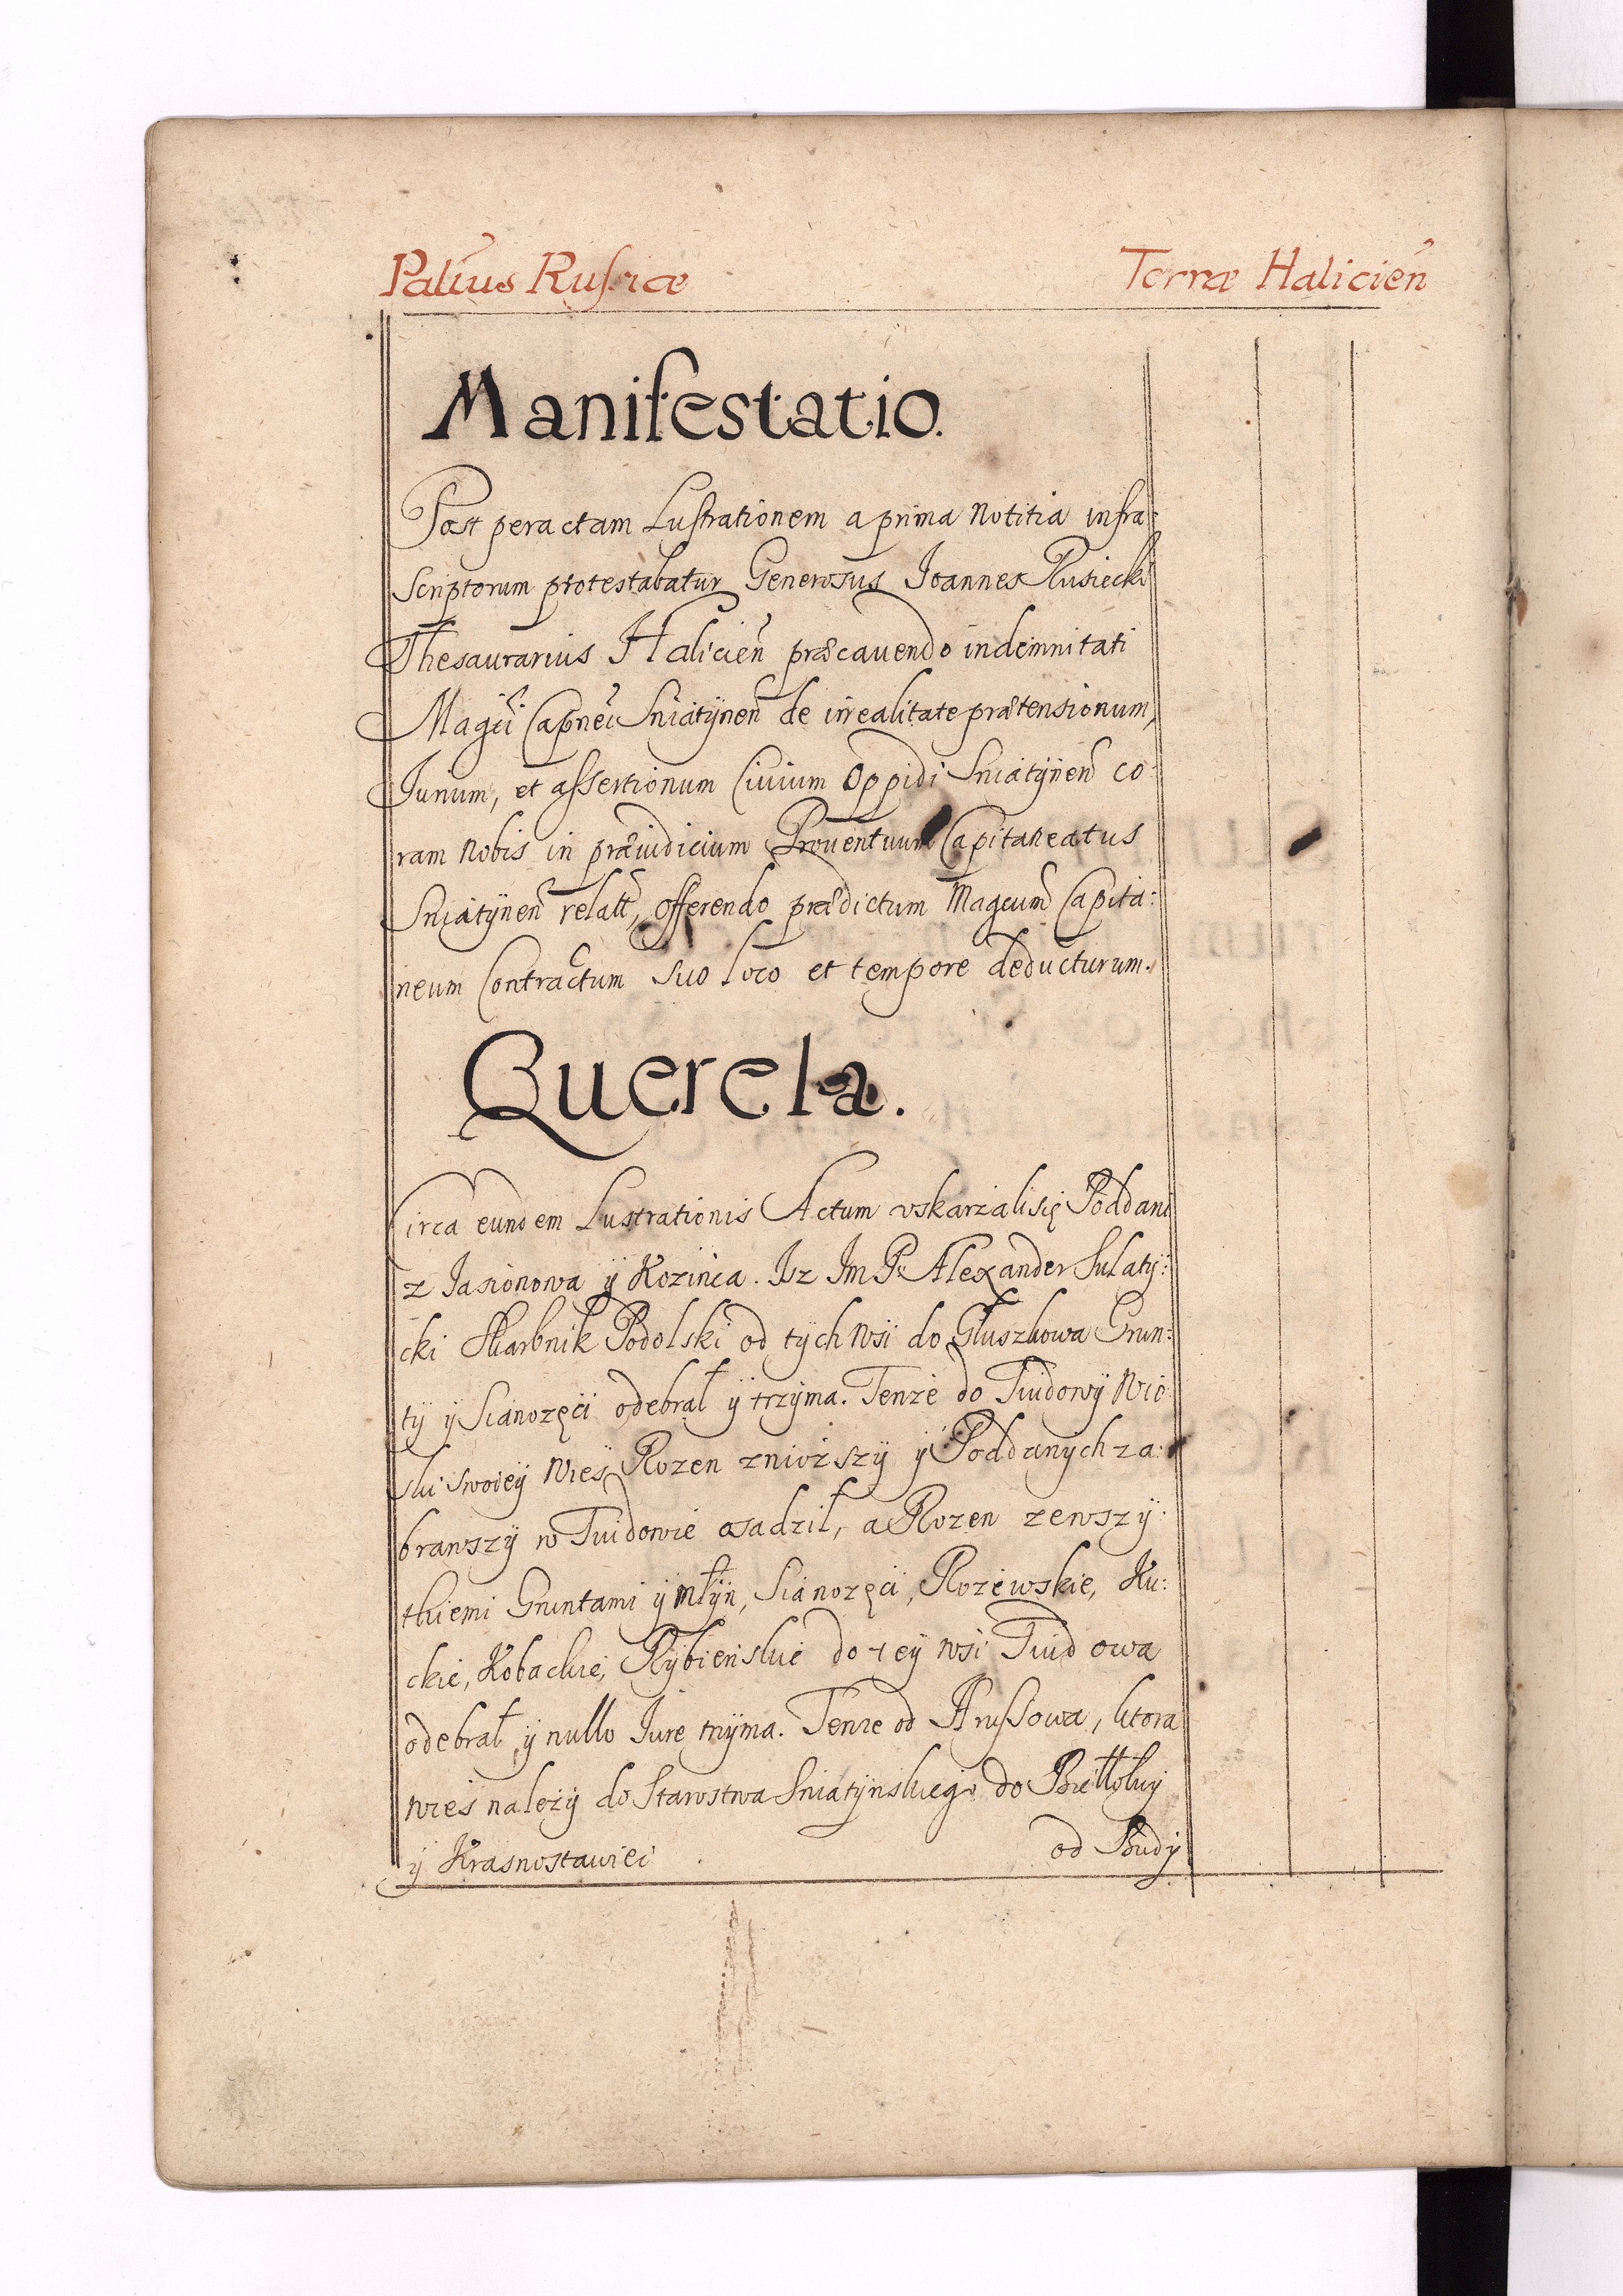 Palius Russiæ Terræ Halicien̄
Manifestatio.
Post peractam Lustrationem a prima Notitia infra:
scriptorum protestabatur Generosus Joannes Rusiecki
Thesaurarius Halicien̄ præcauendo indemnitati
Magci Capnei Sniatÿnen̄ de irrealitate prætensionum,
Jurium, et assertionum Ciuium Oppidi Sniatÿnen̄ co:
ram Nobis in præiudicium Prouentuum Capitaneatus
Sniatÿnen̄ relatt, offerendo prædictum Magcum Capita:
neum Contractum suo loco et tempore deducturum.
Querela.
Circa eundem Lustrationis Actum vskarżali się Poddani
z Jasionowa ÿ Kozinca. Isz Im P. Alexander Sulatÿ:
cki Skarbnik Podolski od tÿch wsi do Głuszkowa Grun:
tÿ ÿ Sianożęci odebrał ÿ trzÿma. Tenże do Tuidowÿ Wio
ski swoieÿ Wieś Rozen zniozszÿ ÿ Poddanych za:
brawszÿ w Tuidowie osadził, a Rozen zewszÿ:
tkiemi Gruntami ÿ młÿn, Sianożęci, Rożewskie, Ku:
ckie, Kobackie, Rÿbieńskie do teÿ wsi Tuidowa
odebrał ÿ nullo Jure trzÿma. Tenże od Russowa, ktora
wieś należÿ do Starostwa Sniatÿnskiego do Biełłoluÿ
ÿ Krasnostawiec od Budÿ